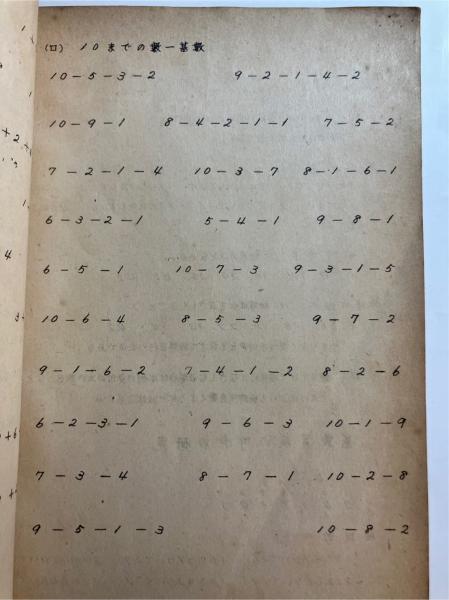 (ロ) 10までの数－基数
10－5－3－2 9－2－1－4－2
10－9－1 8－4－2－1－1 7－5－2
7－2－1－4 10－3－7 8－1－6－1
6－3－2－1 5－4－1 9－8－1
6－5－1 10－7－3 9－3－1－5
10－6－4 8－5－3 9－7－2
9－1－6－2 7－4－1－2 8－2－6
6－2－3－1 9－6－3 10－1－9
7－3－4 8－7－1 10－2－8
9－5－1－3 10－8－2